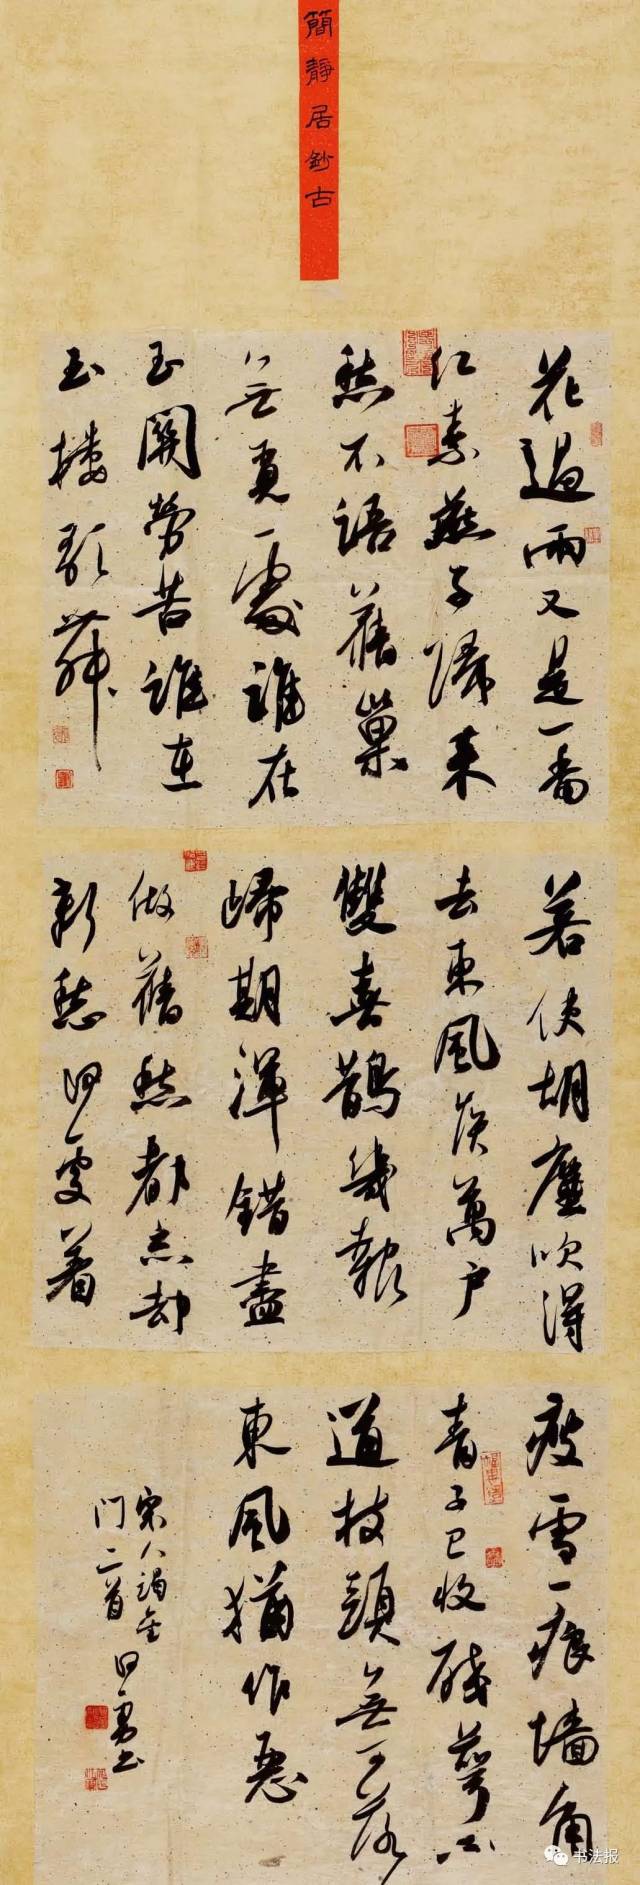 簡靜居鈔古
花過雨又是一番
紅素燕子歸來
愁不語舊巢
無覓處誰在
玉關勞苦誰在
玉樓歌舞
若使胡塵吹得
去東風侯萬戶
雙喜鵲幾報
歸期渾錯盡
做舊愁都忘却
新愁何處着
瘦雪一痕墙角
青子已收殘萼不
道枝頭無可落
東風猶作惡
宋人謁金
门二首
书法报